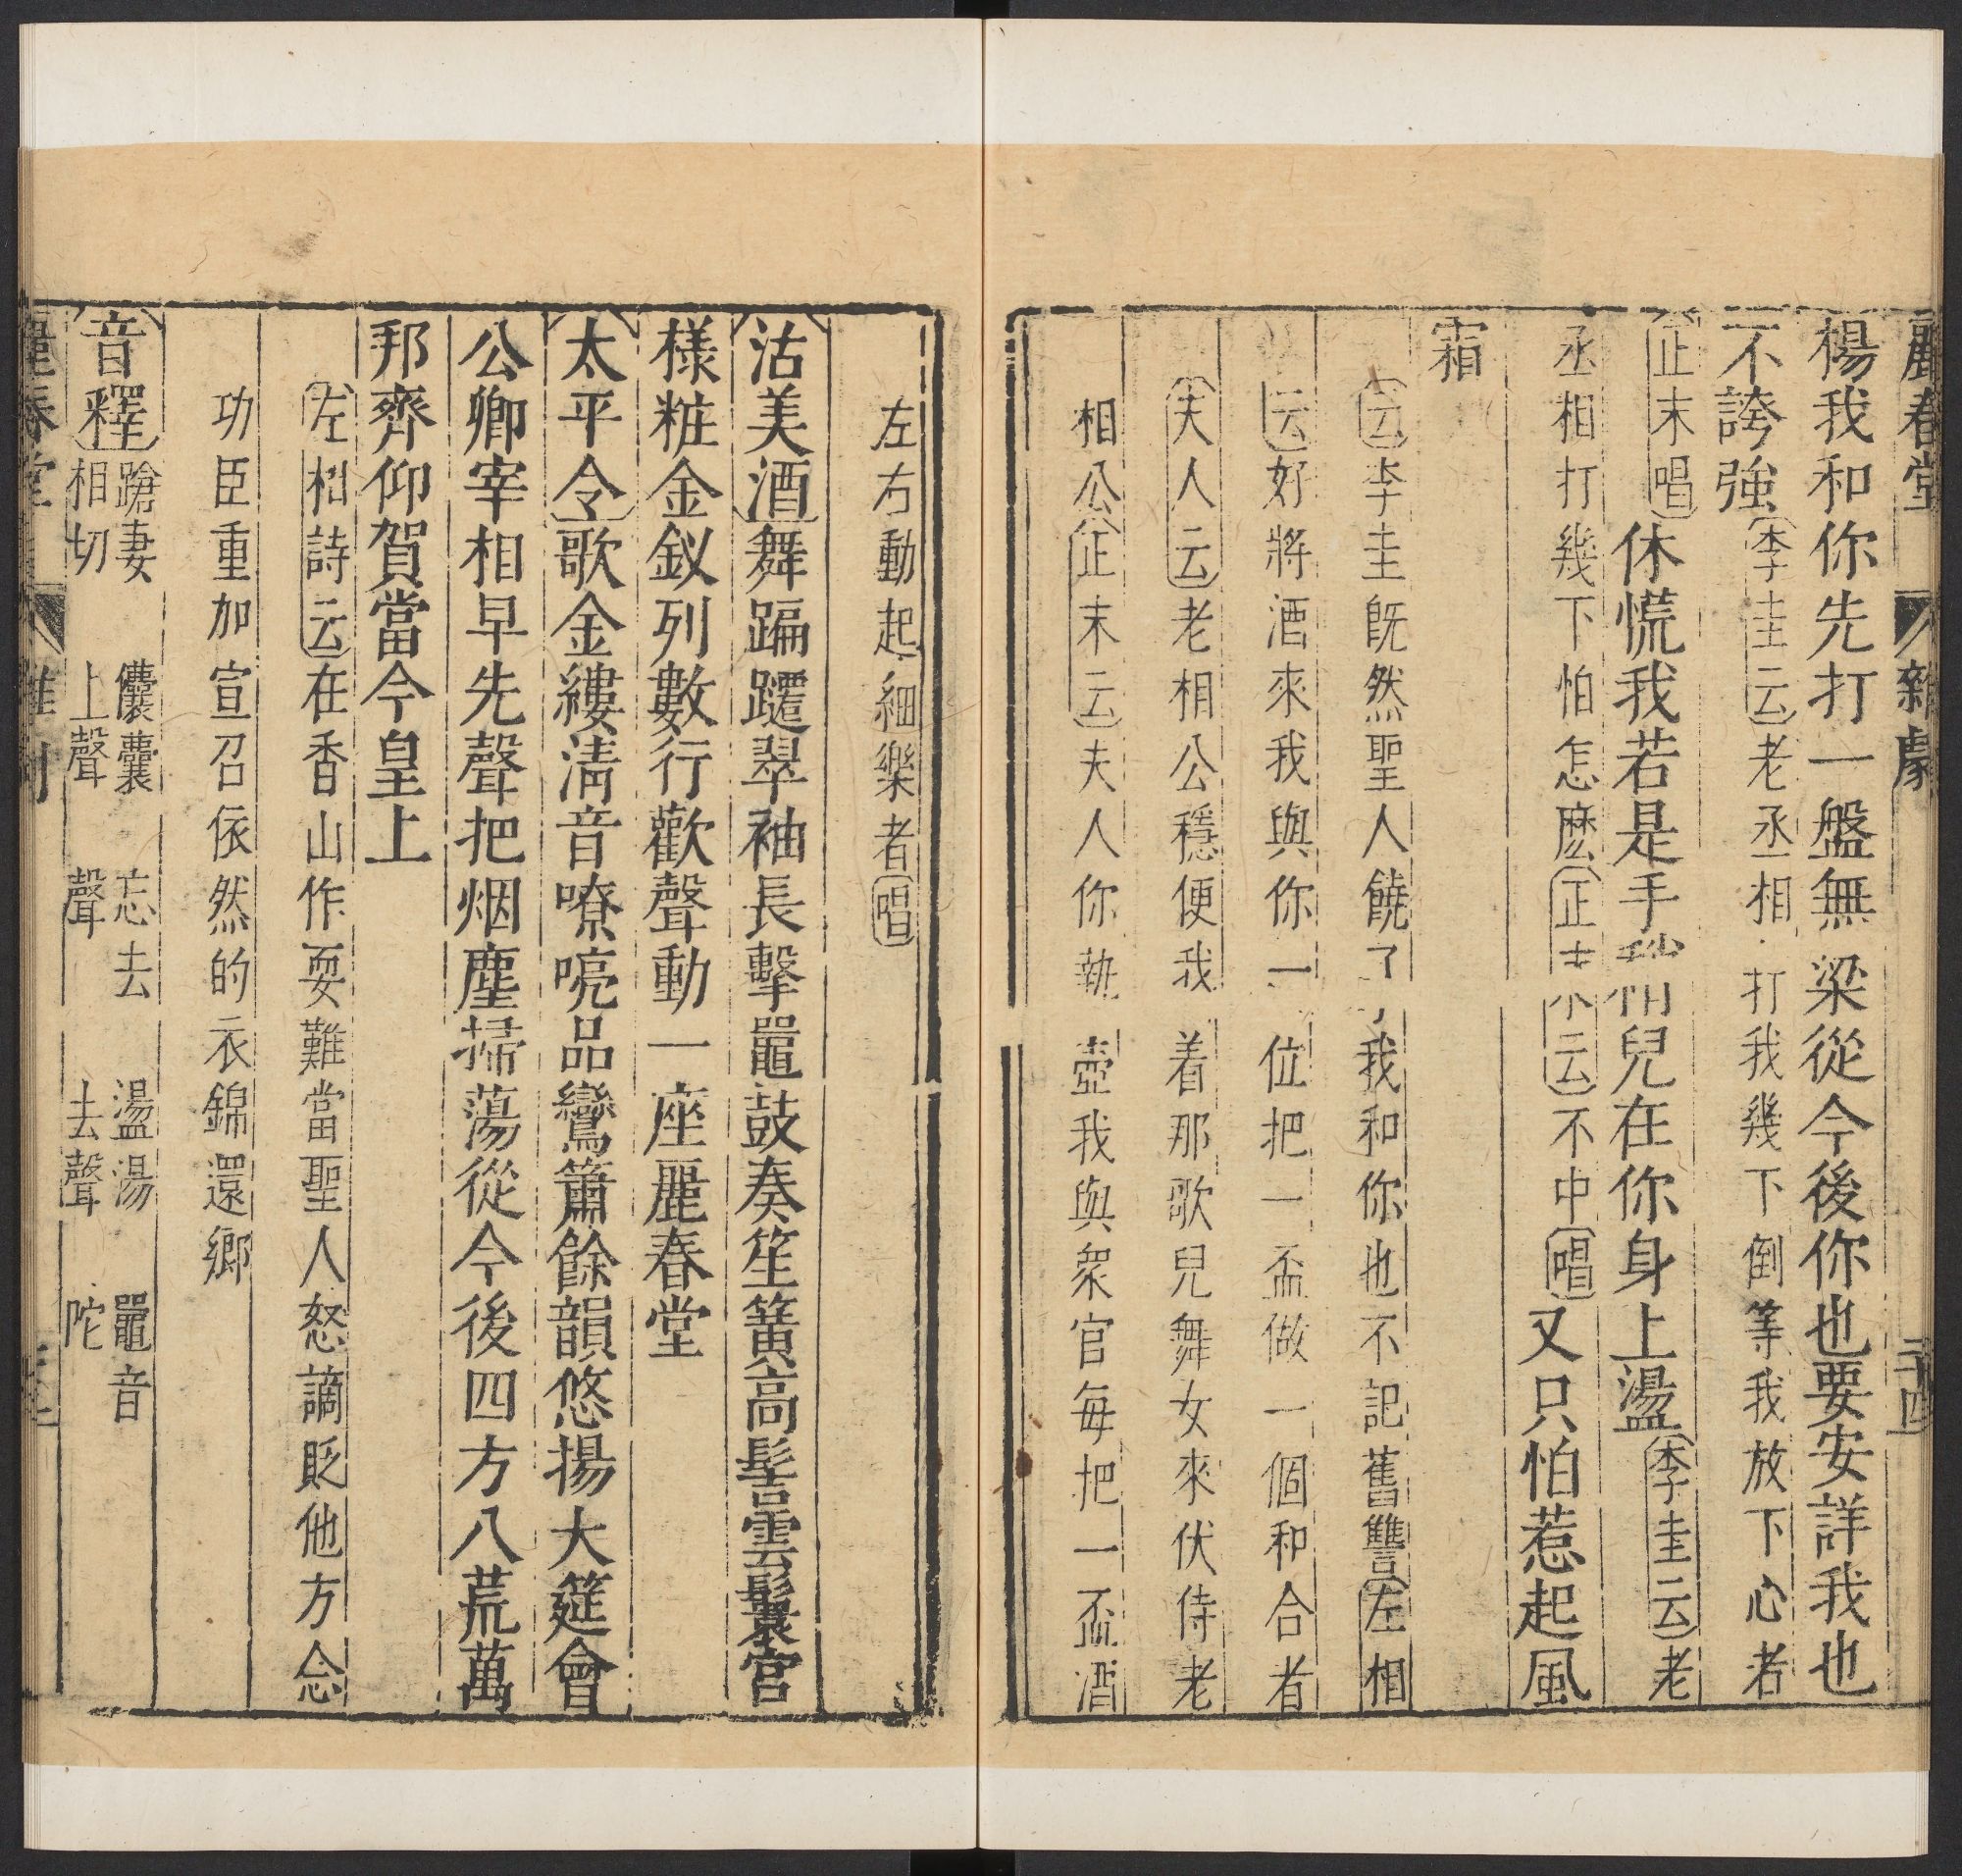 麗春堂 雜劇 二十四
楊我和你先打一盤無梁從今後你也要安詳我也
不誇強(李圭云)老丞相打我幾下倒等我放下心者
(正末唱)休慌我若是手稍兒在你身上盪(李圭云)老
丞相打幾下怕怎麽(正末云)不中(唱)又只怕惹起風
霜
(云)李圭旣然聖人饒了我和你也不記舊讐(左相
云)好將酒來我與你一位把一盃做一個和合者
(夫人云)老相公穩便我着那歌兒舞女來伏侍老
相公(正末云)夫人你執壺我與衆官每把一盃酒
左右動起細樂者(唱)
(沽美酒)舞蹁躚翠袖長擊鼍鼓奏笙簧高髻雲鬟宮
樣粧金釵列數行歡聲動一座麗春堂
(太平令)歌金縷淸音嘹喨品鸞簫餘韻悠揚大筵會
公卿宰相早先聲把烟塵掃蕩從今後四方八荒萬
邦齊仰賀當今皇上
(左相詩云)在香山作耍難當聖人怒謫貶他方念
功臣重加宣召依然的衣錦還鄉
(音釋)蹌妻相切 儾囊上聲 忘去聲 盪湯去聲 鼍音陀
麗春堂